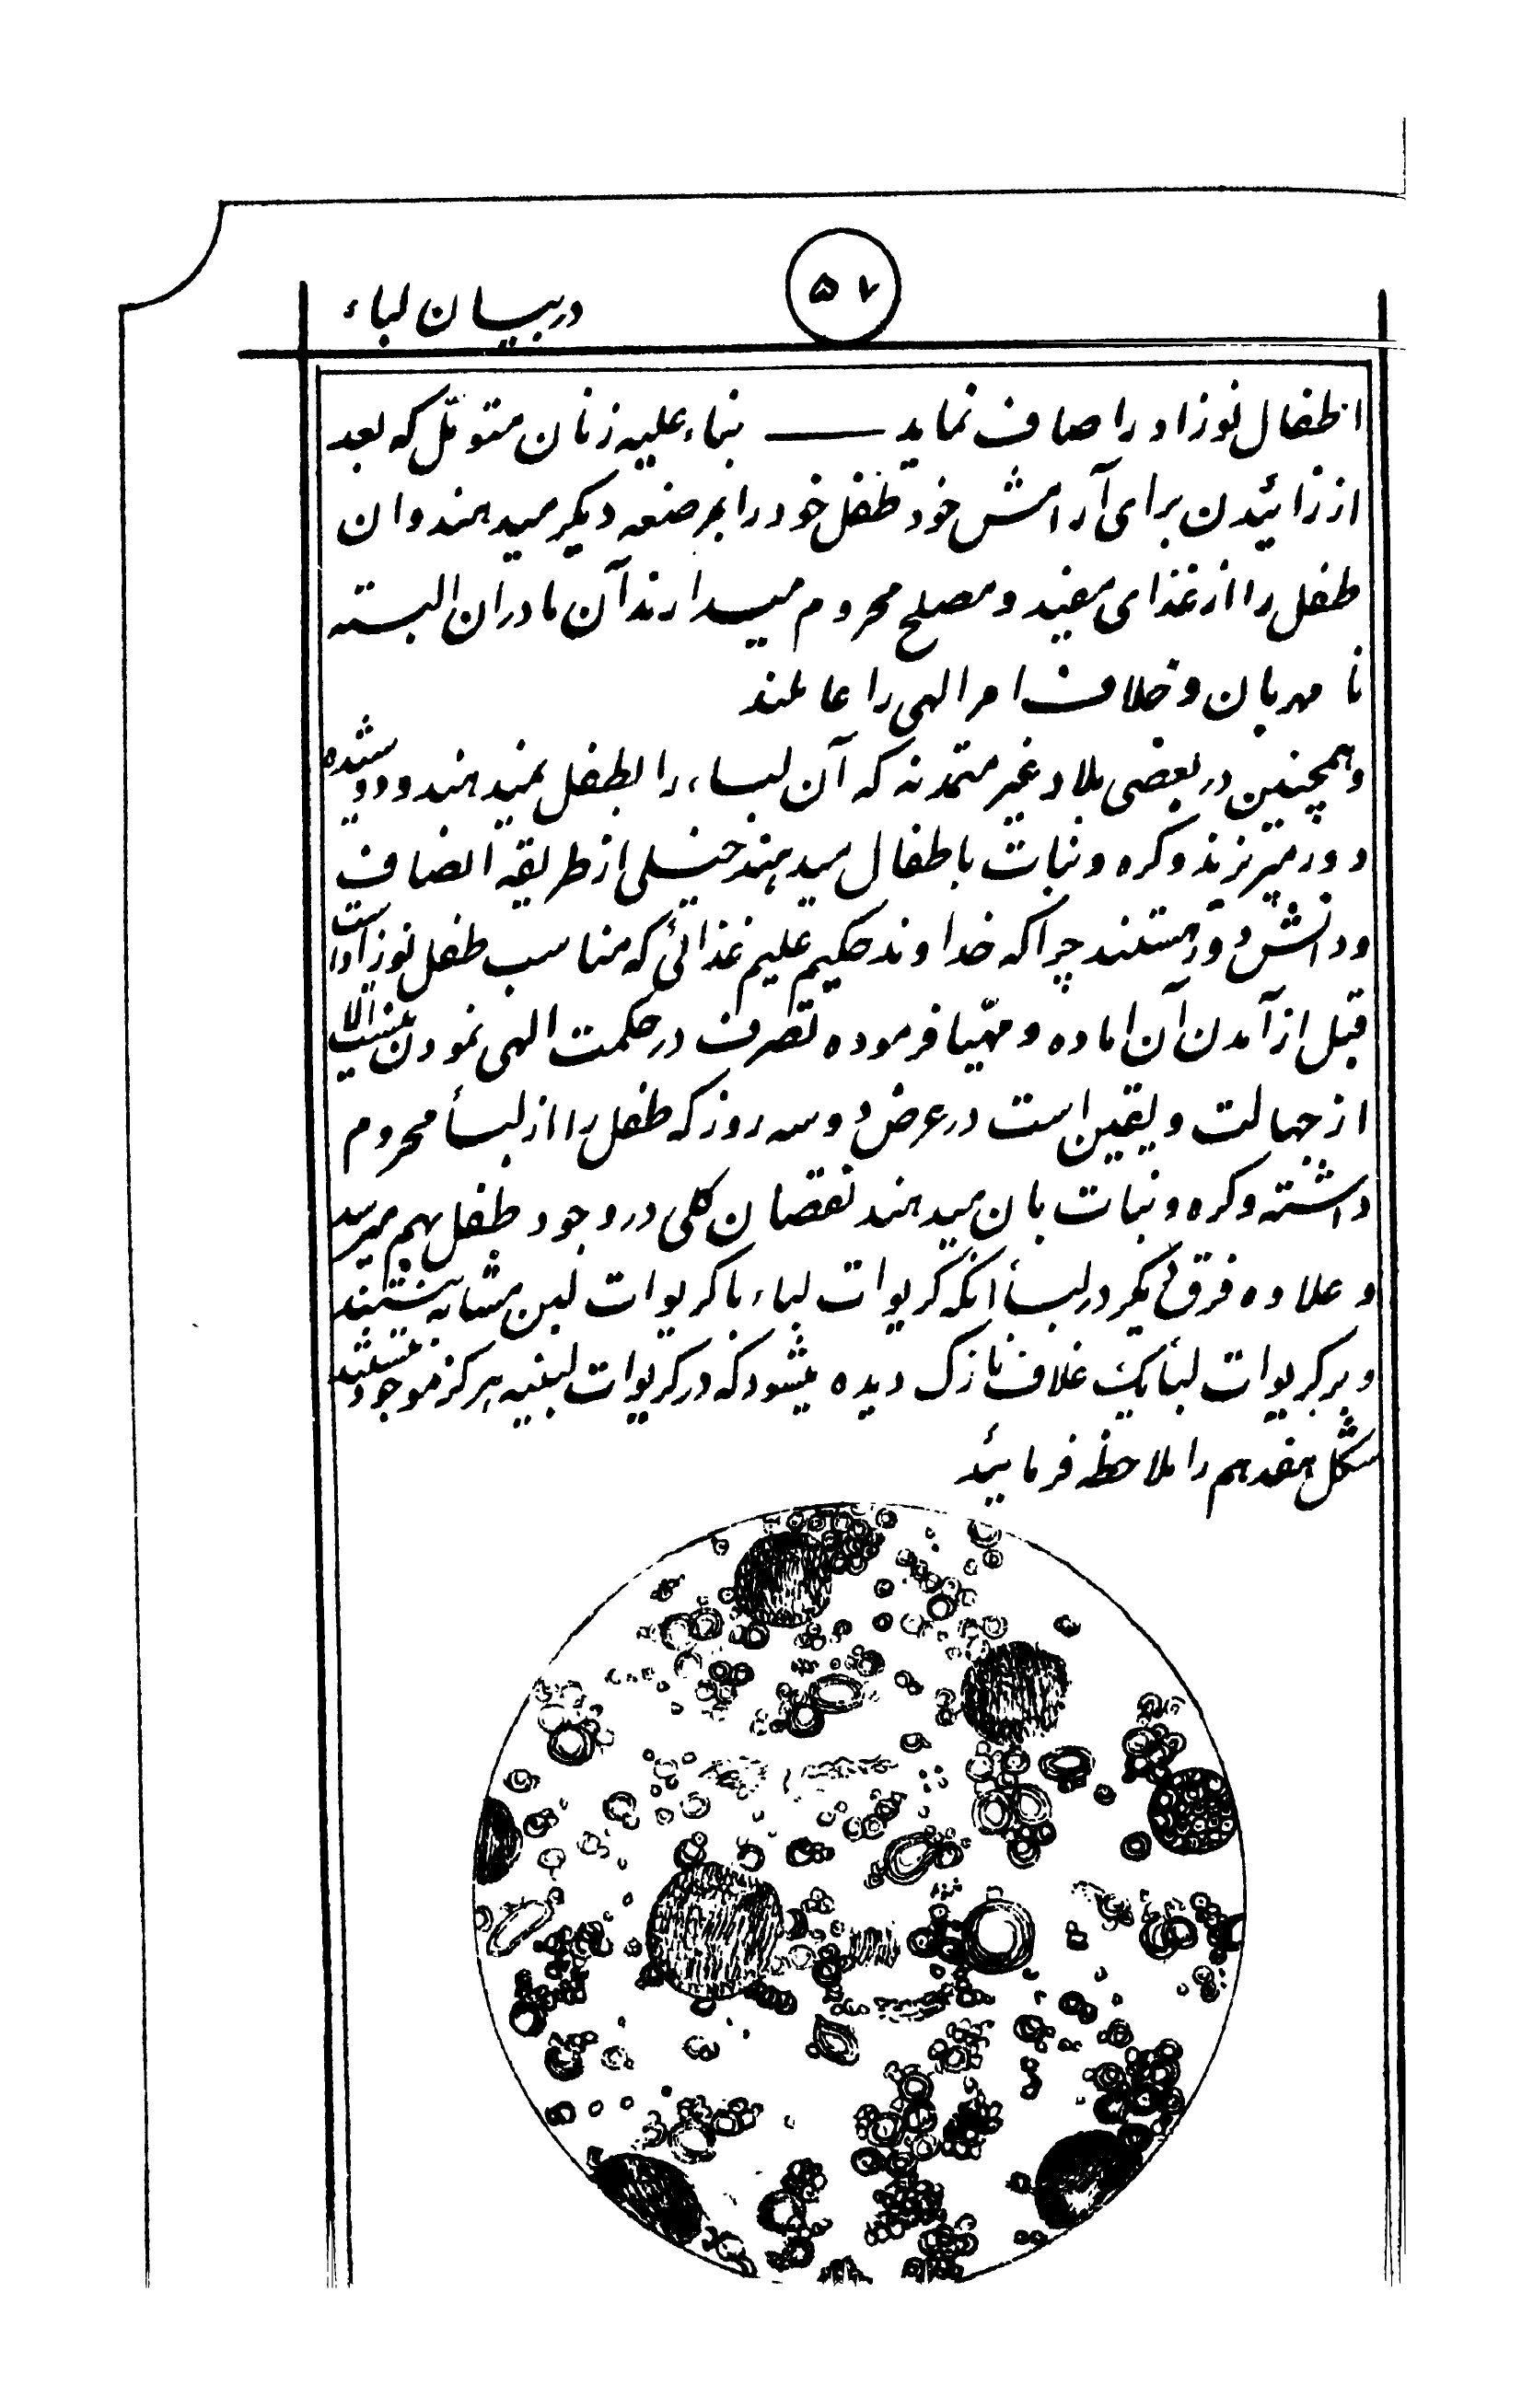 ۵۷
در بیان لباء
اطفال نوزاد را صاف نماید ــــ بناء علیه زنان متموّل که بعد
از زائیدن برای آرامش خود طفل خود را بمرضعه دیگر میدهند و ان
طفل را از غذای مفید و مصلح محروم میدارند آن مادران البته
نا مهربان و خلاف امر الهی را عاملند
و همچنین در بعضی بلاد غیر متمدنه که آن لباء را بطفل نمیدهند و دوشیده
دور میریزند و کره و نبات باطفال میدهند خیلی از طریقه انصاف
و دانش دور هستند چرا که خداوند حکیم علیم غذائی که مناسب طفل نوزاد است
قبل از آمدن آن اماده و مهیّا فرموده تصرف در حکمت الهی نمودن نیست الا
از جهالت و یقین است در عرض دو سه روز که طفل را از لبأ محروم
داشته و کره و نبات بان میدهند نقصان کلی در وجود طفل بهم میرسد
و علاوه فرق دیگر در لبأ انکه کریوات لباء با کریوات لبن مشابه نیستند
و بر کریوات لبأ یک غلاف نازک دیده میشود که در کریوات لبنیه هرگز موجود نیستند
شکل هفدهم را ملاحظه فرمائید